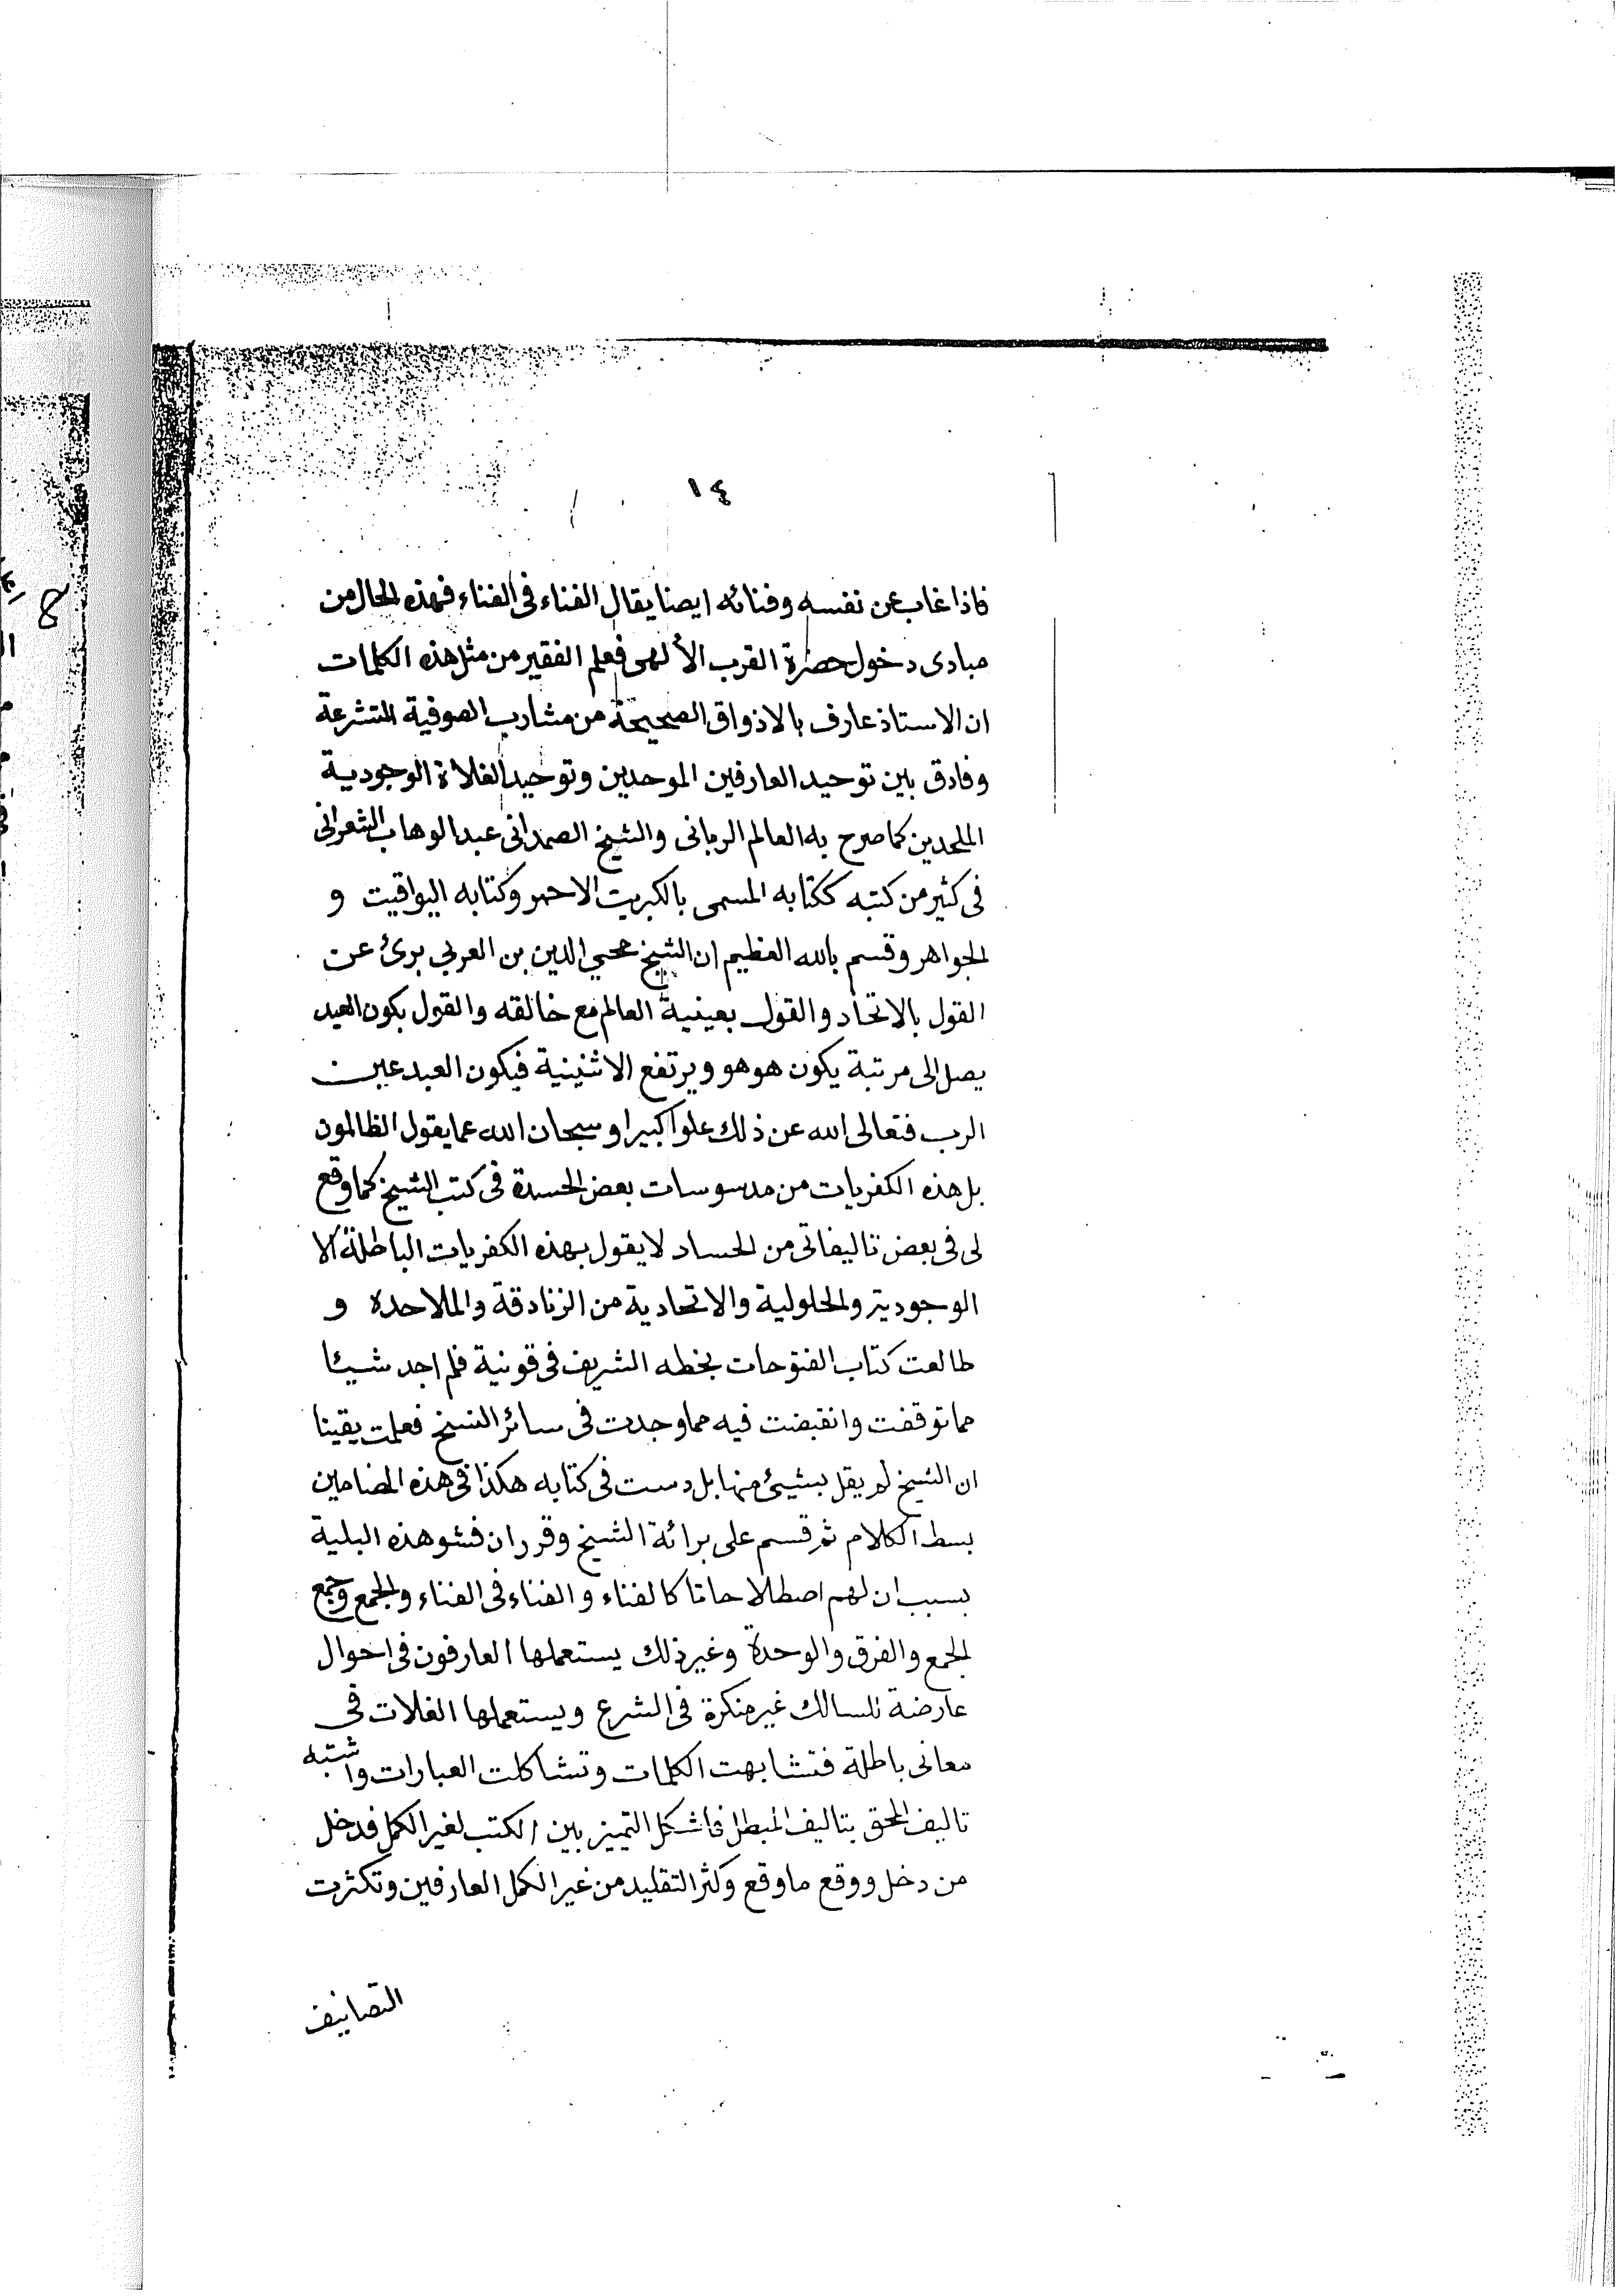 ١٤
فاذا غاب عن نفسه وفنائه ايضا يقال الفناء فى الفناء فهذه الحال من
مبادى دخول حضرة القرب الألهى فعلم الفقير من مثل هذه الكلمات
ان الاستاذ عارف بالاذواق الصحيحة من مشارب الصوفية المتشرعة
وفارق بين توحيد العارفين الموحدين وتوحيد الغلاة الوجودية
الملحدين كما صرح به العالم الربانى والشيخ الصمدانى عبد الوهاب الشعرانى
فى كثير من كتبه ككتابه المسمى بالكبريت الاحمر وكتابه اليواقيت و
الجواهر وقسم بالله العظيم ان الشيخ محيي الدين بن العربي برئ عن
القول بالاتحاد والقول بعينية العالم مع خالقه والقول بكون العبد
يصل الى مرتبة يكون هو هو ويرتفع الاثنينية فيكون العبد عين
الرب فتعالى الله عن ذلك علوا كبيرا وسبحان الله عما يقول الظالمون
بل هذه الكفريات من مدسوسات بعض الحسدة فى كتب الشيخ كما وقع
لى فى بعض تاليفاتى من الحساد لا يقول بهذه الكفريات الباطلة الا
الوجودية والحلولية والاتحادية من الزنادقة والملاحدة و
طالعت كتاب الفتوحات بخطه الشريف فى قونية فلم اجد شيئا
مما توقفت وانقبضت فيه مما وجدت فى سائر النسخ فعلمت يقينا
ان الشيخ لم يقل بشيئ منها بل دست فى كتابه هكذا فى هذه المضامين
بسط الكلام ثم قسم على برائة الشيخ وقرر ان فشو هذه البلية
بسبب ان لهم اصطلاحاتا كالفناء والفناء فى الفناء والجمع وجمع
الجمع والفرق والوحدة وغير ذلك يستعملها العارفون فى احوال
عارضة للسالك غير منكرة فى الشرع ويستعملها الغلات فى
معانى باطلة فتشابهت الكلمات وتشاكلت العبارات واشتبه
تاليف المحق بتاليف المبطل فاشكل التمييز بين الكتب لغير الكمل فدخل
من دخل ووقع ما وقع وكثر التقليد من غير الكمل العارفين وتكثرت
التصانيف